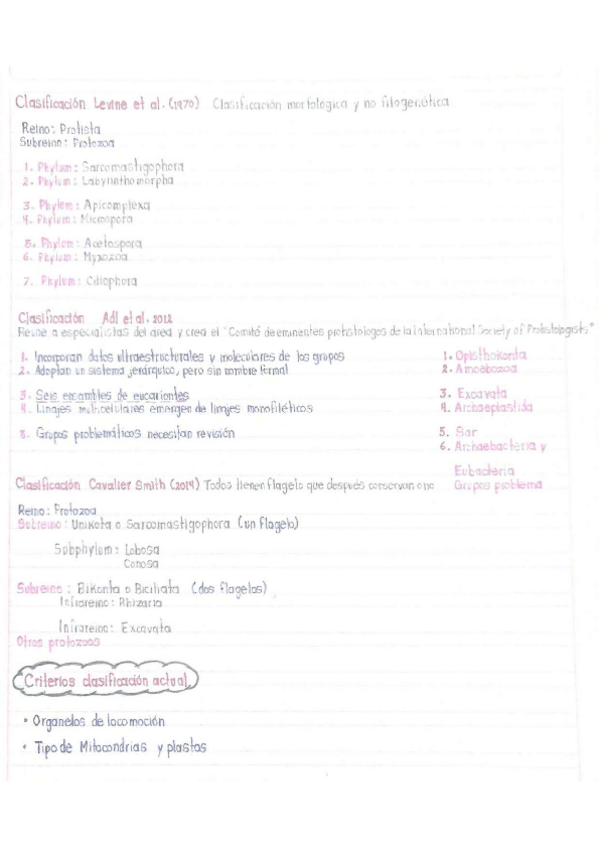 Clasificación Levine et al. (1970) Clasificación morfológica y no filogenética
Reino: Protista
Subreino: Protozoa
1. Phylum: Sarcomastigophora
2. Phylum: Labyrinthomorpha
3. Phylum: Apicomplexa
4. Phylum: Microspora
5. Phylum: Acetospora
6. Phylum: Myxozoa
7. Phylum: Ciliophora
Clasificación Adl et al. 2012
Reune a especialistas del area y crea el "Comité de eminentes protistologos de la International Society of Protistologists"
1. Incorporan datos ultraestructurales y moleculares de los grupos
2. Adoptan un sistema jerárquico, pero sin nombre formal
3. Seis ensambles de eucariontes
4. Linajes multicelulares emergen de linajes monofiléticos
5. Grupos problemáticos necesitan revisión
1. Opisthokonta
2. Amoebozoa
3. Excavata
4. Archaeplastida
5. Sar
6. Archaebacteria y
Eubacteria
Grupos problema
Clasificación Cavalier Smith (2014) Todos tienen flagelo que después conservan o no
Reino: Protozoa
Subreino: Unikota o Sarcomastigophora (un flagelo)
Subphylum: Lobosa
Conosa
Subreino: Bikonta o Biciliata (dos flagelos)
Infrareino: Rhizaria
Infrareino: Excavata
Otros protozoos
Criterios clasificación actual
• Organelos de locomoción
• Tipo de Mitocondrias y plastos